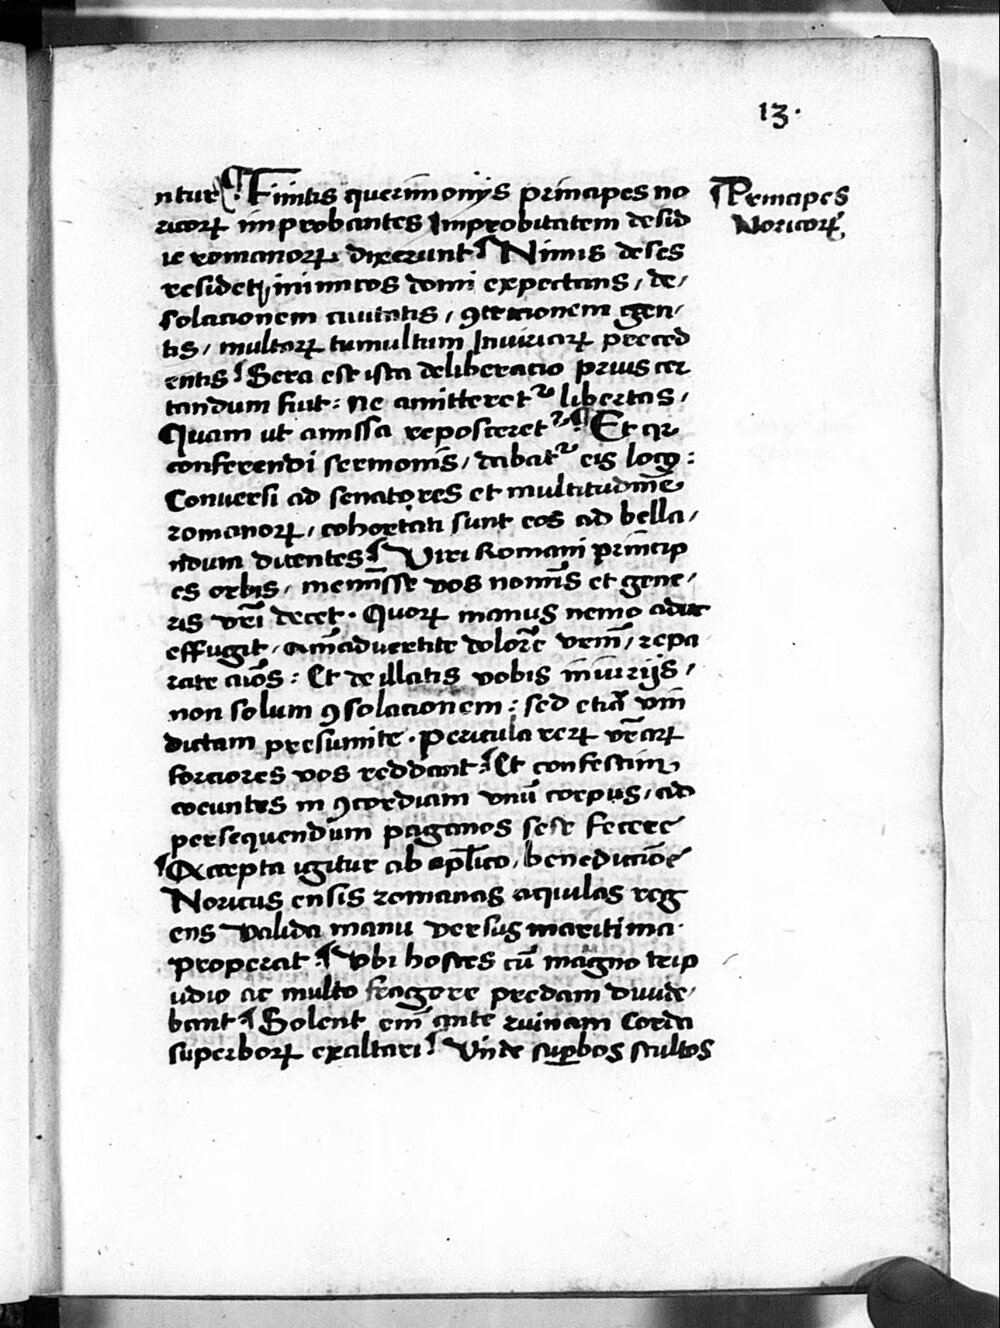 13.
ntur ¶ Finitis querimonijs principes no
ricorꝝ improbantes Improbitatem desid
ie romanorꝝ dixerunt ¶ Nimis deses
residetꝭ inimicos domi expectans / de/
solacionem ciuitatis / ꝯtricionem gen/
tis / multorꝝ tumultum Iniuriarꝝ preced
entis ¶ Sera est ista deliberacio prius cer
tandum fuit: ne amitteret᷑ libertas /
Quam ut amissa reposceret᷑ ¶ Et qꝛ
conferendi sermonis / dabat᷑ eis locꝰ:
Conuersi ad senatores et multitudinē
romanorꝝ / cohortati sunt eos ad bella/
ndum dicentes ¶ Viri Romani princip
es orbis / meminisse vos nominis et gene/
ris vr̄i decet. Quorꝝ manus nemo adhuc
effugit / aīaduertite dolorē vrm̄ / repa
rate aīos: Et de illatis vobis iniurijs /
non solum ꝯsolacionem: sed etiā vin
dictam presumite. Pericula rerꝝ vr̄arꝝ
forciores vos reddant ¶ Et confestim
coeuntes in ꝯcordiam vnū corpus / ad
persequendum paganos sese fecere
¶ Accepta igitur ab aplico / benedictiōe
Noricus ensis romanas aquilas reg
ens valida manu versus maritima.
properat ¶ Vbi hostes cū magno trip
udio ac multo fragore predam diuide/
bant ¶ Solent em̄ ante ruinam Corda
superborꝝ exaltari ¶ Vnde suꝑbos stultos
¶ Principes
Noricorꝝ